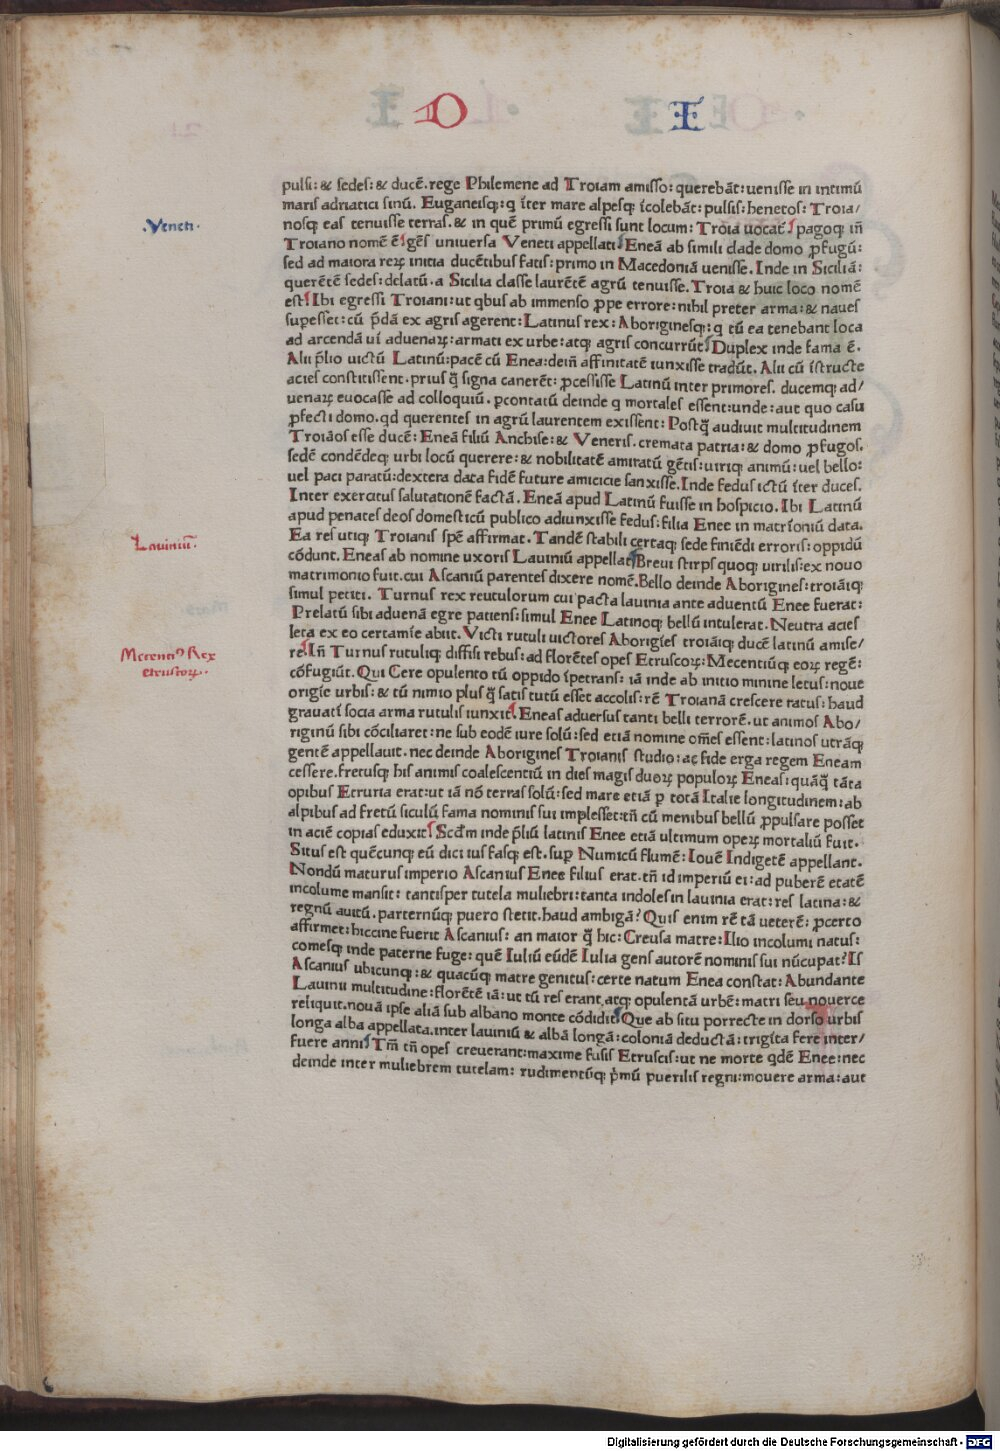 D I
pulsi: & sedes: & ducē. rege Philemene ad Troiam amisso: querebāt: uenisse in intimū
maris adriatici sinū. Euganeisq; q īter mare alpesq; īcolebāt: pulsis: henetos: Troia/
nosq; eas tenuisse terras. & in quē primū egressi sunt locum: Troia uocat̄ pagoq; iñ
Troiano nomē ē gēs uniuersa Veneti appellati Eneā ab simili clade domo ꝓfugū:
sed ad maiora reꝝ initia ducētibus fatis: primo in Macedoniā uenisse. Inde in Siciliā:
querētē sedes: delatū. a Sicilia classe laurētē agrū tenuisse. Troia & huic loco nomē
est Ibi egressi Troiani: ut qbus ab immenso ꝓpe errore: nihil preter arma: & naues
suꝑesset: cū p̄dā ex agris agerent: Latinus rex: Aboriginesq; q tū ea tenebant loca
ad arcendā uī aduenaꝝ: armati ex urbe: atq; agris concurrūt Duplex inde fama ē.
Alii p̄lio uictū Latinū: pacē cū Enea: deiñ affinitatē iunxisse tradūt. Alii cū īstructe
acies constitissent. prius q̄ signa canerēt: ꝓcessisse Latinū inter primores. ducemq; ad/
uenaꝝ euocasse ad colloquiū. ꝑcontatū deinde q mortales essent: unde: aut quo casu
ꝓfecti domo. qd querentes in agrū laurentem exissent: Postq̄ audiuit multitudinem
Troiāos esse ducē: Eneā filiū Anchise: & Veneris. cremata patria: & domo ꝓfugos.
sedē condēdeq; urbi locū querere: & nobilitatē amiratū gētis: uiriq; animū: uel bello:
uel paci paratū: dextera data fidē future amicicie sanxisse. Inde fedus ictū īter duces.
Inter exercitus salutationē factā. Eneā apud Latinū fuisse in hospicio. Ibi Latinū
apud penates deos domesticū publico adiunxisse fedus: filia Enee in matrīoniū data.
Ea res utiq; Troianis spē affirmat. Tandē stabili certaq; sede finiēdi erroris: oppidū
cōdunt. Eneas ab nomine uxoris Lauiniū appellat Breui stirps quoq; uirilis: ex nouo
matrimonio fuit. cui Ascaniū parentes dixere nomē. Bello deinde Aborigines: troiāiq;
simul petiti. Turnus rex reutulorum cui pacta lauinia ante aduentū Enee fuerat:
Prelatū sibi aduenā egre patiens: simul Enee Latinoq; bellū intulerat. Neutra acies
leta ex eo certamīe abiit. Victi rutuli uictores Aborigīes troiāiq; ducē latinū amise/
re Iñ Turnus rutuliq; diffisi rebus: ad florētes opes Etruscoꝝ: Mecentiūq; eoꝝ regē:
cōfugiūt. Qui Cere opulento tū oppido īpetrans: iā inde ab initio minine letus: noue
origīe urbis: & tū nimio plus q̄ satis tutū esset accolis: rē Troianā crescere ratus: haud
grauati socia arma rutulis iunxit Eneas aduersus tanti belli terrorē. ut animos Abo/
riginū sibi cōciliaret: ne sub eodē iure solū: sed etiā nomine om̄es essent: latinos utrāq;
gentē appellauit. nec deinde Aborigines Troianis studio: ac fide erga regem Eneam
cessere. Fretusq; his animis coalescentiū in dies magis duoꝝ populoꝝ Eneas: quāq̄ tāta
opibus Etruria erat: ut iā nō terras solū: sed mare etiā ꝑ totā Italie longitudinem: ab
alpibus ad fretū siculū fama nominis sui implesset: tn̄ cū menibus bellū ꝓpulsare posset
in aciē copias eduxit Scd̄m inde p̄liū latinis Enee etiā ultimum opeꝝ mortaliū fuit.
Situs est quēcunq; eū dici ius fasq; est. suꝑ Numicū flumē: Iouē Indigetē appellant.
Nondū maturus imperio Ascanius Enee filius erat. tn̄ id imperiū ei: ad puberē etatē
incolume mansit: tantisper tutela muliebri: tanta indoles in lauinia erat: res latina: &
regnū auitū. parternūq; puero stetit. haud ambigā? Quis enim rē tā ueterē: ꝓcerto
affirmet: hiccine fuerit Ascanius: an maior q̄ hic: Creusa matre: Ilio incolumi natus:
comesq; inde paterne fuge: quē Iuliū eūdē Iulia gens autorē nominis sui nūcupat? Is
Ascanius ubicunq; & quacūq; matre genitus: certe natum Enea constat: Abundante
Lauinii multitudine: florētē iā: ut tū res erant. atq; opulentā urbē: matri seu nouerce
reliquit. nouā ipse aliā sub albano monte cōdidit Que ab situ porrecte in dorso urbis
longa alba appellata. inter lauiniū & albā longā: coloniā deductā: trigīta fere inter/
fuere anni Tm̄ tn̄ opes creuerant: maxime fusis Etruscis: ut ne morte qdē Enee: nec
deinde inter muliebrem tutelam: rudimentūq; p̄mū puerilis regni: mouere arma: aut
.Veneti.
Lauiniū.
Mecentiꝰ Rex
etruscoꝝ.
Digitalisierung gefördert durch die Deutsche Forschungsgemeinschaft - DFG